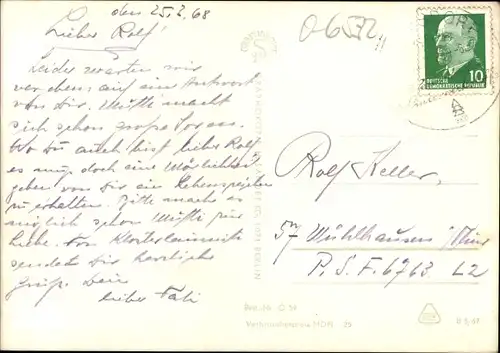 den 25.2.68
Lieber Rolf!
Leider warten wir
vergebens auf eine Antwort
von Dir. Mutti macht
sich schon große Sorgen.
Wo Du auch bist lieber Rolf
es muß doch eine Möglichkeit
geben von Dir ein Lebenszeichen
zu erhalten. Bitte mach es
möglich schon Mutti zur
Liebe. Von Klosterlausnitz
sendet Dir herzliche
Grüße Dein
lieber Vati
0-6572
DEUTSCHE
DEMOKRATISCHE REPUBLIK
10
Rolf Keller,
57 Mühlhausen/Thür
P.S.F. 6763 L2
Best.-Nr. O 54
Verbraucherpreis MDN -,20